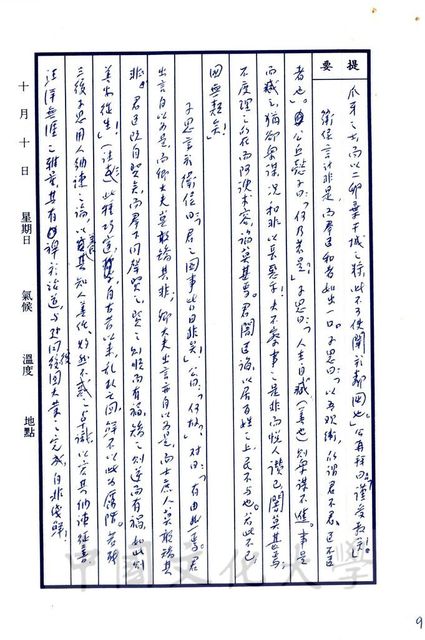 提要
爪牙之士而以二卵棄干城之將，此不可使聞於鄰國也」公再拜曰：「謹受教矣！」
衛侯言計非是，而群臣和者如出一口。子思曰：「以吾觀衛，所謂君不君，臣不臣
者也」。公丘懿子曰：「何乃若是」子思曰：「人主自臧（善也）則眾謀不進。事是
而臧之，猶卻眾謀，況和非以長惡乎！夫不察事之是非而悅人讚己，闇莫甚焉；
不度理之所在而阿諛求容，諂莫甚焉。君闇臣諂，以居百姓之上，民不與也。若此不已，
國無類矣！
子思言於衛侯曰：「君之國事日非矣！」公曰：「何故」對曰：「有由然焉。君
出言自以為是，而卿大夫莫敢矯其非，卿大夫出言亦自以為是，而士庶人莫敢矯其
非。君臣既自賢矣，而群下同聲賢之，賢之則順而有福，矯之則逆而有禍，如此則
善安從生！」此種自古以來，亂政之國，不以此為厲階。
三復子思用人納諫之論，以其知人善任
汪洋無涯之雅量，其有裨於治道與復國大業之完成，自非淺鮮！
十月十日 星期日 氣候 溫度 地點
中國文化大學
9